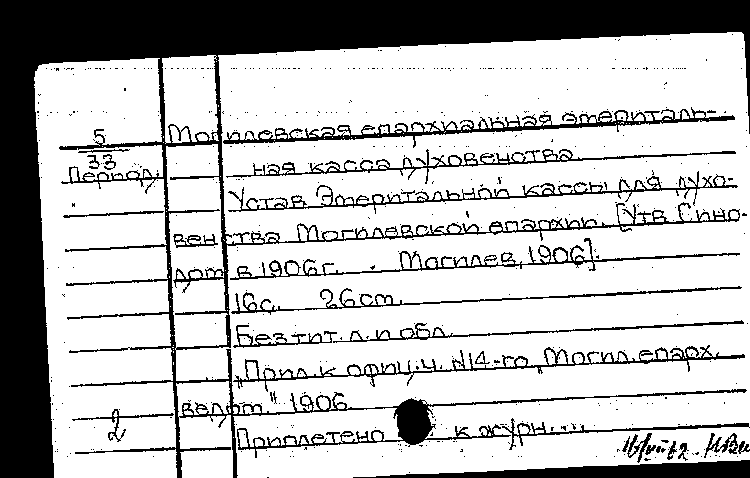 5
33
Период.
Могилевская епархиальная эмериталь-
ная касса духовенства.
Устав Эмеритальной кассы для духо-
венства Могилевской епархии. [Утв. Сино-
дом в 1906г. . Могилев, 1906].
16с. 26см.
Без тит. л. и обл.
"Прил. к офиц. ч. N14-го "Могил. епарх.
ведом." 1906
2
Приплетено к журн....